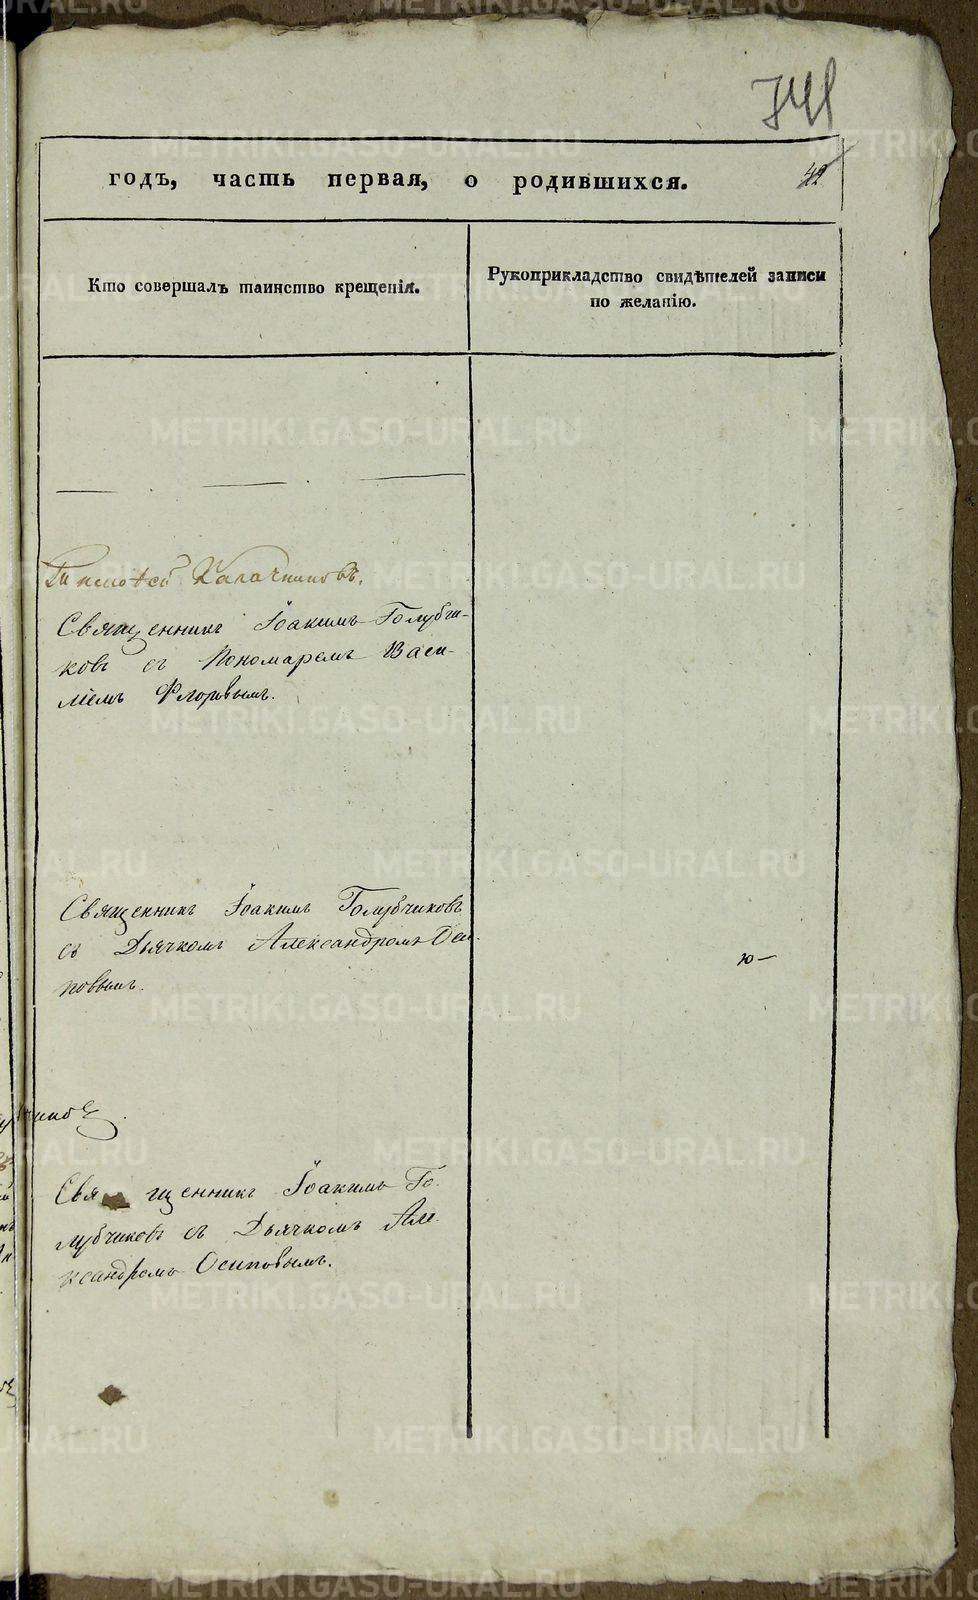 741
годъ, часть первая, о родившихся.
42
Кто совершалъ таинство крещенія.
Рукоприкладство свидѣтелей записи
по желанію.
Тимоѳей Калачниковъ.
Священникъ Іоакимъ Голубчи-
ковъ съ Пономаремъ Васи-
ліемъ Флоровымъ.
Священникъ Іоакимъ Голубчиковъ
съ Дьячкомъ Александромъ Оси-
повымъ.
Священникъ Іоакимъ Го-
лубчиковъ съ Дьячкомъ Але-
ксандромъ Осиповымъ.
METRIKI.GASO-URAL.RU